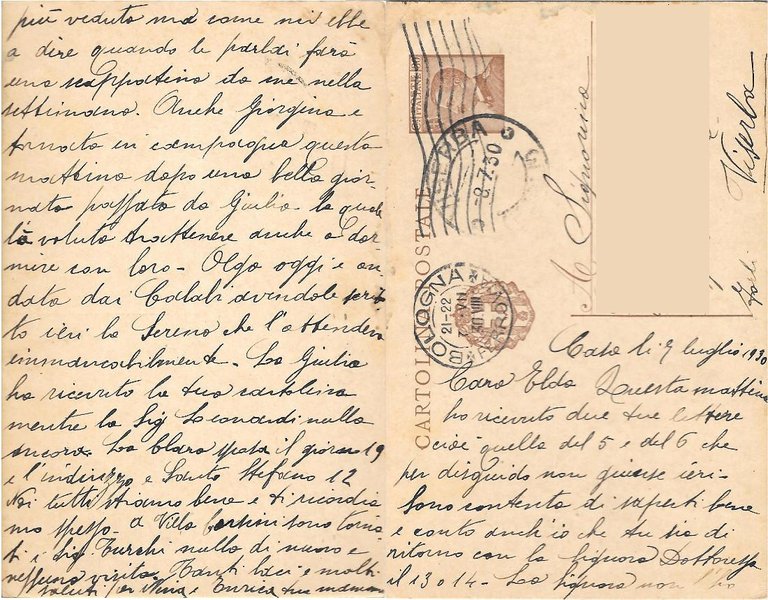 CARTOLINA POSTALE
VISERBA
8.7.30
BOLOGNA
21-22
FERROVIA
A Signorina
Viserba
Forlì
Casa li 7 luglio 1930
Cara Elda Questa mattina
ho ricevuto due tue lettere
cioè quella del 5 e del 6 che
per disguido non giunse ieri.
Sono contenta di saperti bene
e conto anch'io che tu sia di
ritorno con la Signora Dottoressa
il 13 o 14 - La Signora non l'ho
più veduta ma come mi ebbe
a dire quando le parlai farà
una scappatina da me nella
settimana. Anche Giorgina e
tornata in campagna questa
mattina dopo una bella gior-
nata passata da Giulia la quale
là voluta trattenere anche a dor-
mire con loro - Olga oggi e an
data dai Calabi avendole scrit
to ieri la Serena che l'attendeva
immancabilmente - La Giulia
ha ricevuto la tua cartolina
mentre la Sig Leonardi nulla
ancora. La Clara sposa il giorno 19
e l'indirizzo e Santo Stefano 12
Noi tutti stiamo bene e ti ricordia
mo spesso - a Villa sono torna
ti i Sig Turchi nulla di nuovo e
nessuna visita. Tanti baci e molti
saluti per e Enrica tua mamma